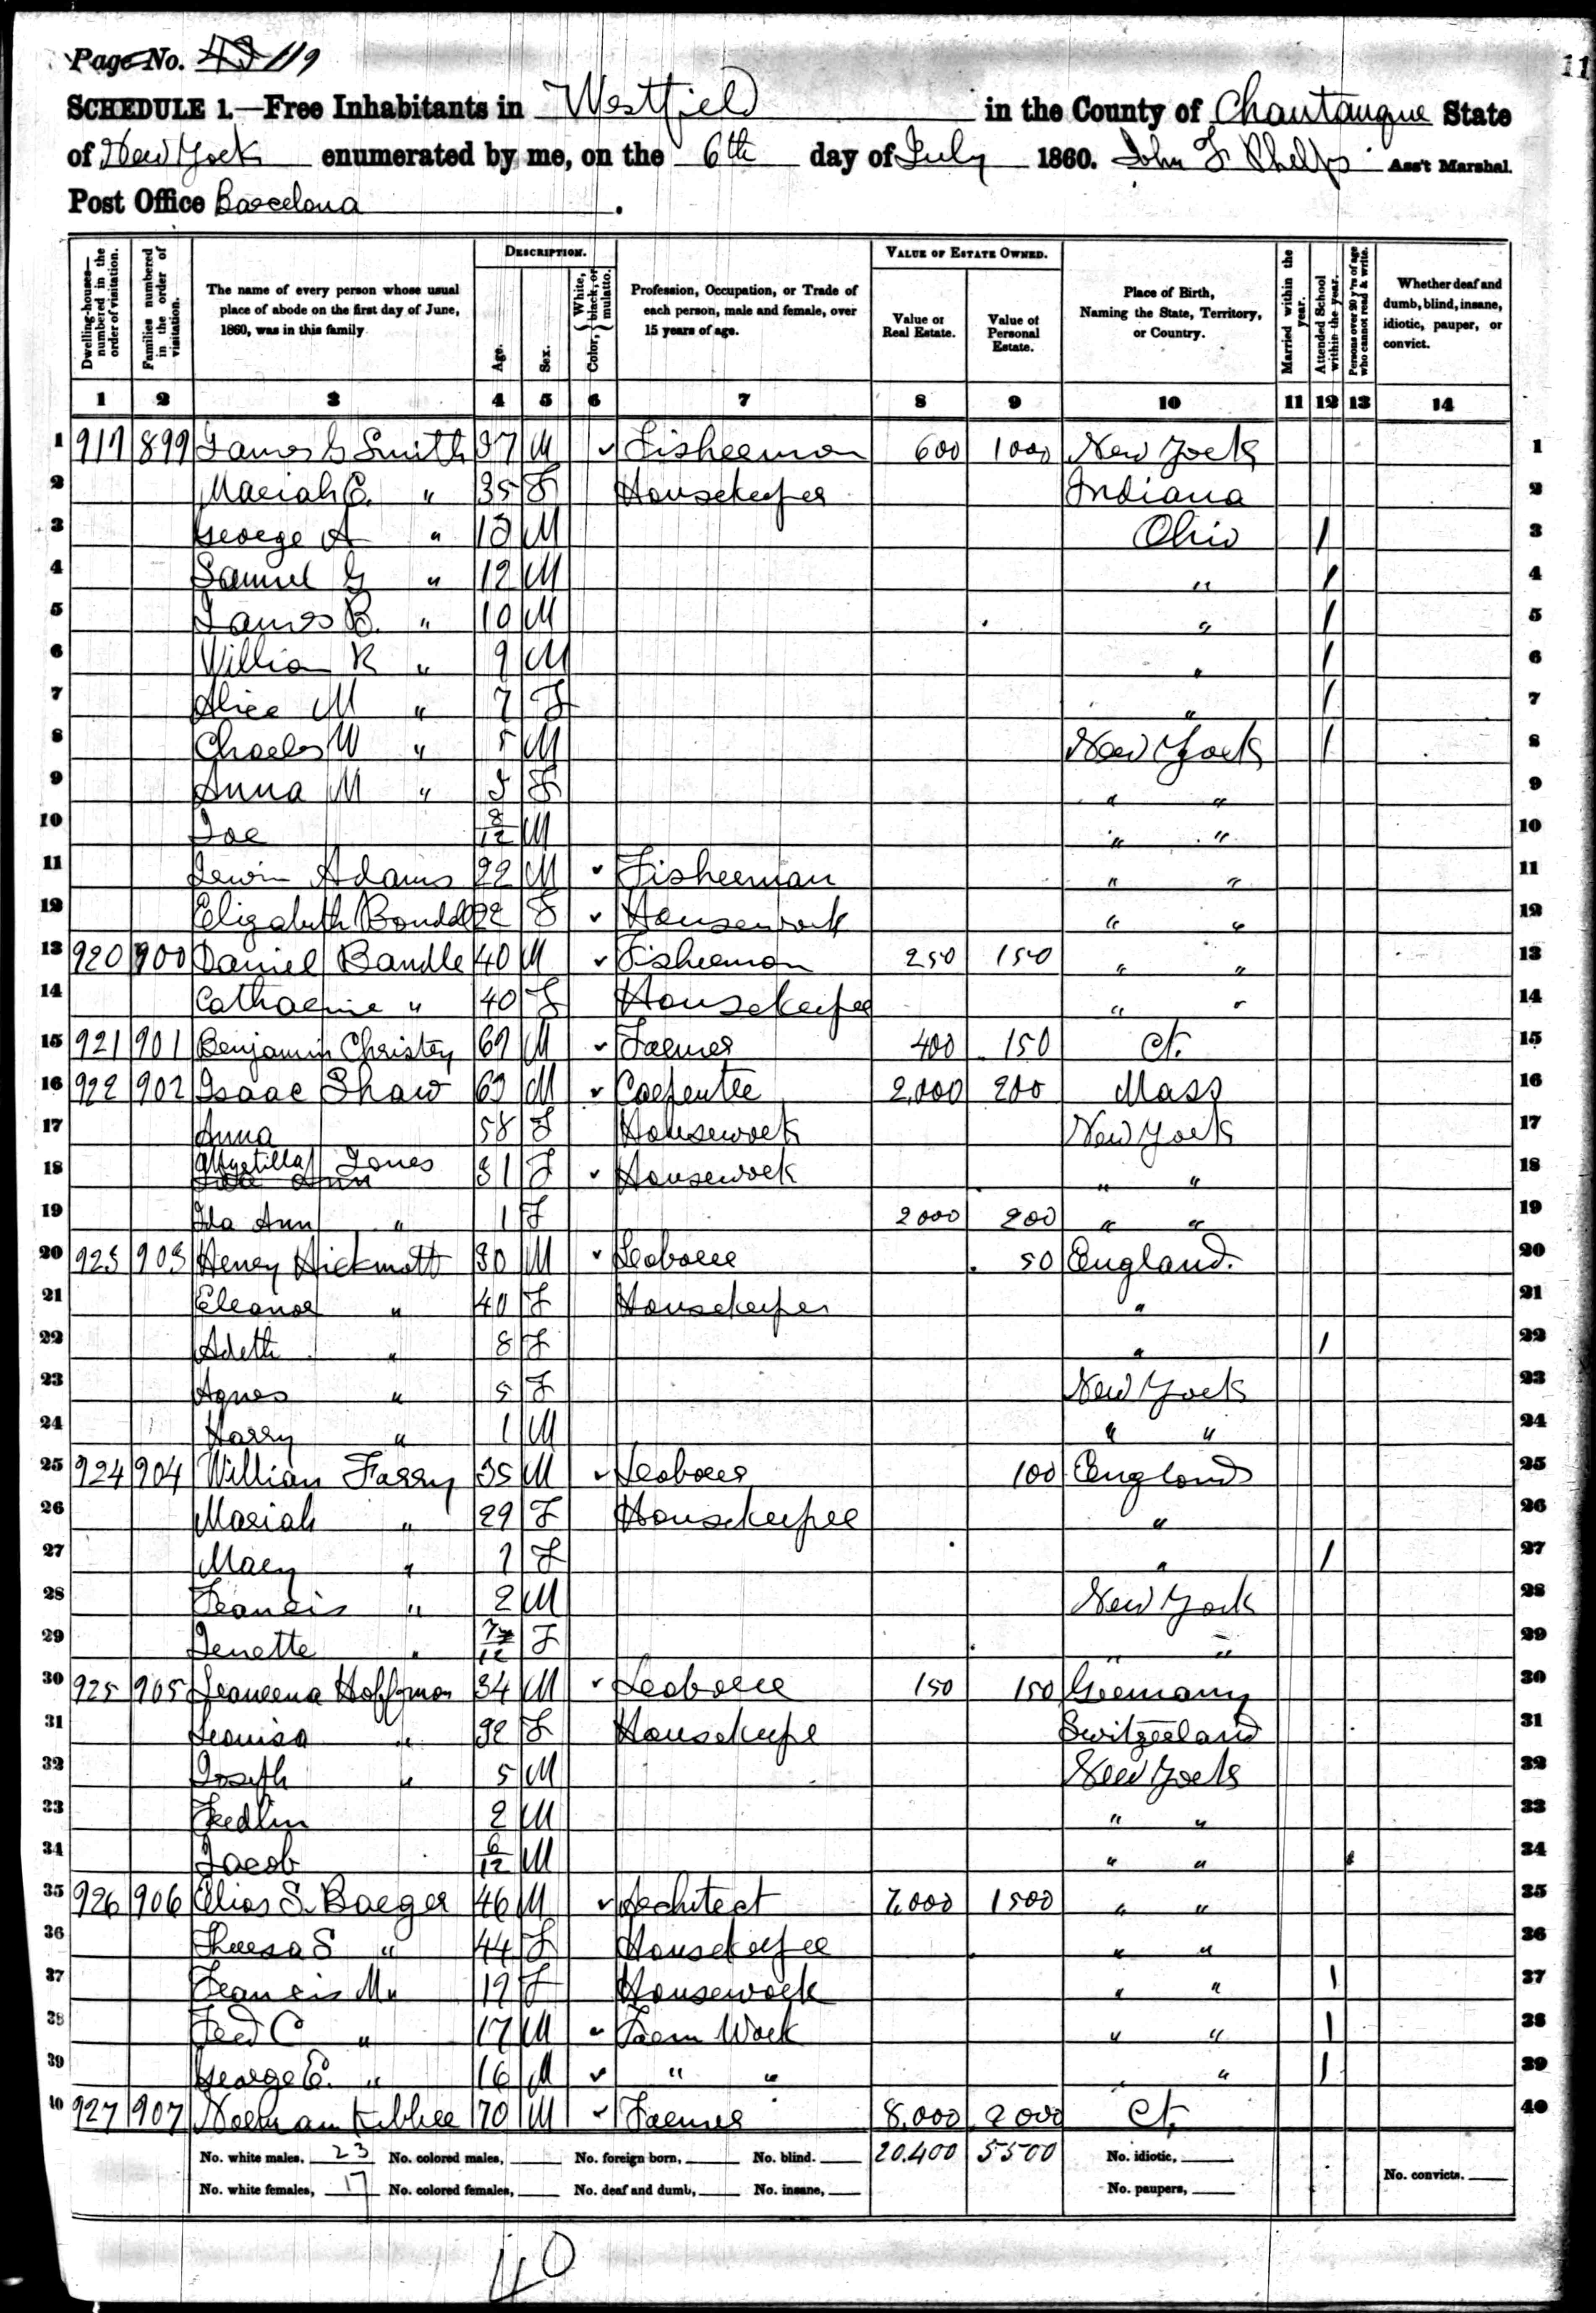 Page No. 43 119
11
SCHEDULE 1.—Free Inhabitants in Westfield in the County of Chautauque State
of New York enumerated by me, on the 6th day of July 1860. John F. Phelps Ass't Marshal.
Post Office Barcelona .
Dwelling-houses—numbered in the order of visitation. Families numbered in the order of visitation. The name of every person whose usual place of abode on the first day of June, 1860, was in this family DESCRIPTION. Age. Sex. Color, { White, black, or mulatto. Profession, Occupation, or Trade of each person, male and female, over 15 years of age. VALUE OF ESTATE OWNED. Value of Real Estate. Value of Personal Estate. Place of Birth, Naming the State, Territory, or Country. Married within the year. Attended School within the year. Persons over 20 y'rs of age who cannot read & write. Whether deaf and dumb, blind, insane, idiotic, pauper, or convict.
1 2 3 4 5 6 7 8 9 10 11 12 13 14
1 919 899 James G Smith 37 M ✓ Fisherman 600 1000 New York 1
2 Mariah C. " 35 F Housekeeper Indiana 2
3 George A " 13 M Ohio / 3
4 Samuel G " 12 M " / 4
5 James B. " 10 M " / 5
6 William R " 9 M " / 6
7 Alice M " 7 F " / 7
8 Charles W " 5 M New York / 8
9 Anna M " 3 F " " 9
10 Joe 8/12 M " " 10
11 Adams 22 M ✓ Fisherman " " 11
12 Elizabeth 22 F ✓ Housework " " 12
13 920 900 Daniel Bandle 40 M ✓ Fisherman 250 150 " " 13
14 Catharine " 40 F Housekeeper " " 14
15 921 901 Benjamin Christey 69 M ✓ Farmer 400 150 Ct. 15
16 922 902 Isaac Shaw 63 M ✓ Carpenter 2,000 200 Mass 16
17 Anna 58 F Housework New York 17
18 Jones 31 F ✓ Housework " " 18
19 Ida Ann " 1 F 2000 200 " " 19
20 923 903 Henry Hickmott 30 M ✓ Laborer 50 England. 20
21 Eleanor " 40 F Housekeeper " 21
22 Adeth " 8 F " / 22
23 Agnes " 5 F New York 23
24 Harry " 1 M " " 24
25 924 904 William Farry 35 M ✓ Laborer 100 England 25
26 Mariah " 29 F Housekeeper " 26
27 Mary " 7 F " / 27
28 Francis " 2 M New York 28
29 Jenette " /12 F " " 29
30 925 905 Hoffman 34 M ✓ Laborer 150 150 Germany 30
31 Louisa " 32 F Housekeepe Switzerland 31
32 Joseph " 5 M New York 32
33 Fredlin 2 M " " 33
34 Jacob 6/12 M " " 34
35 926 906 Elias S. Barger 46 M ✓ Architect 7,000 1500 " " 35
36 Theresa S " 44 F Housekeeper " " 36
37 Francis M " 19 F Housework " " / 37
38 Fred C " 17 M ✓ Farm Work " " / 38
39 George E. " 16 M ✓ " " " / 39
40 927 907 Norman Kibbee 70 M ✓ Farmer 8,000 2000 Ct. 40
No. white males, 23 No. colored males, No. foreign born, No. blind. 20.400 5500 No. idiotic, No. convicts.
No. white females, 17 No. colored females, No. deaf and dumb, No. insane, No. paupers,
40